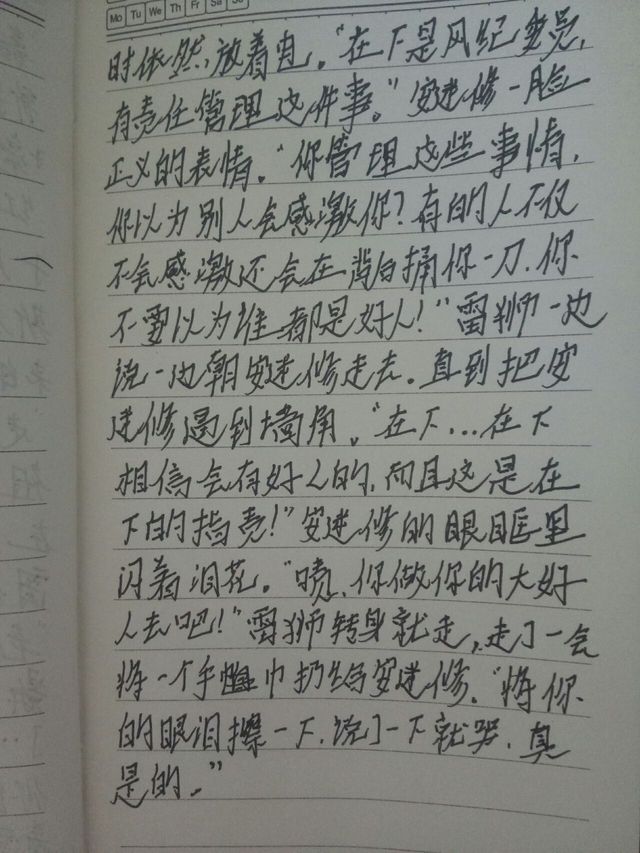 Mo Tu We Th Fr Sa Su
时依然放着电。“在下是风纪委员,
有责任管理这件事。”安迷修一脸
正义的表情。“你管理这些事情,
你以为别人会感激你?有的人不仅
不会感激还会在背后捅你一刀.你
不要以为谁都是好人!”雷狮一边
说一边朝安迷修走去。直到把安
迷修逼到墙角。“在下...在下
相信会有好人的,而且这是在
下的指责!”安迷修的眼眶里
闪着泪花。“啧,你做你的大好
人去吧!”雷狮转身就走,走了一会
将一个手巾扔给安迷修。“将你
的眼泪擦一下.说了一下就哭.真
是的。”